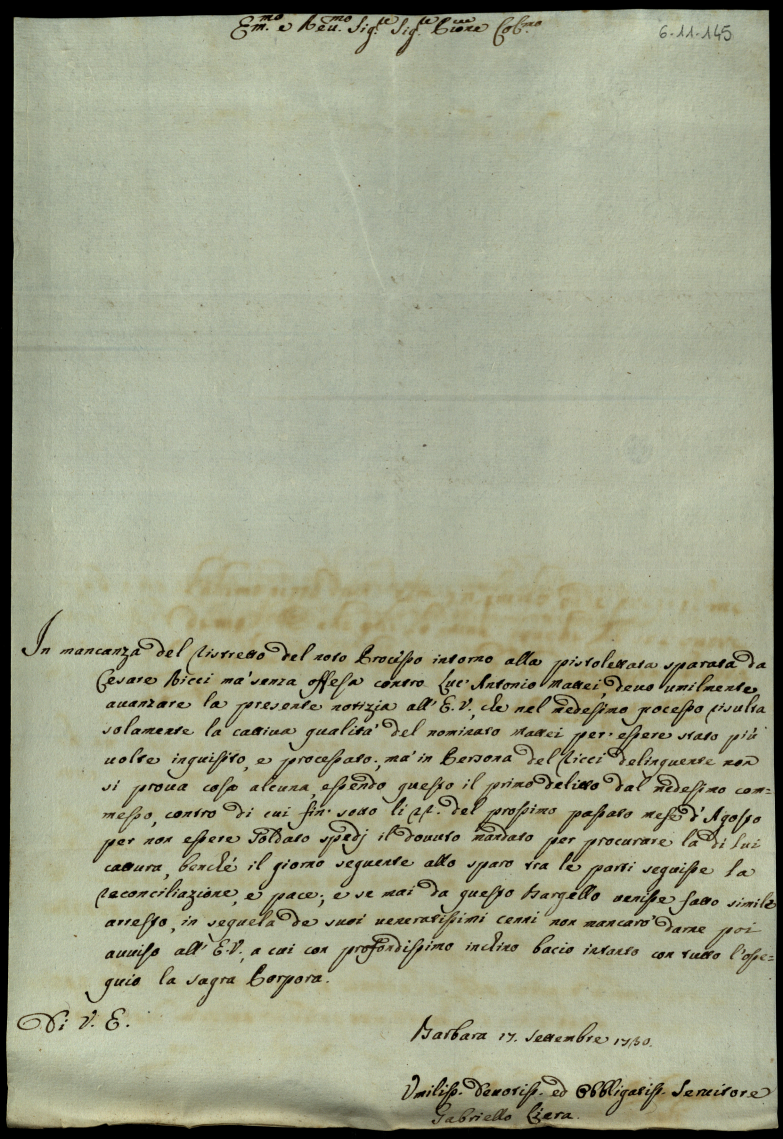 Em.mo e Reu.mo Sig.re Sig.re P.rone Col.mo
6-11-145
In mancanza del ristretto del noto Processo intorno alla pistolettata sparata da
Cesare Ricci mà senza offesa contro Luc' Antonio Mattei, deuo umilmente
auanzare la presente notizia all' E. V., che nel medesimo pocesso risulta
solamente la cattiua qualità del nominato Mattei per essere stato più
uolte inquisito, e processato; mà in Persona del Ricci delinquente non
si proua cosa alcuna, essendo questo il primo delitto dal medesimo com=
messo, contro di cui fin sotto li del prossimo passato mese d'Agosto
per non essere Soldato spedj il douuto mandato per procurare la di lui
cattura, benché il giorno seguente allo sparo tra le parti seguisse la
reconciliazione, e pace; e se mai da questo Bargello uenisse fatto simile
arresto, in sequela de suoi ueneratissimi cenni non mancarò darne poi
auuiso all' E. V., a cui con profondissimo inchino bacio intanto con tutto l'osse=
quio la sagra Porpora.
Di V. E.
Barbara 17. Settembre
Vmiliss. Deuotiss. ed Obbligatiss. Seruitore
Gabriello